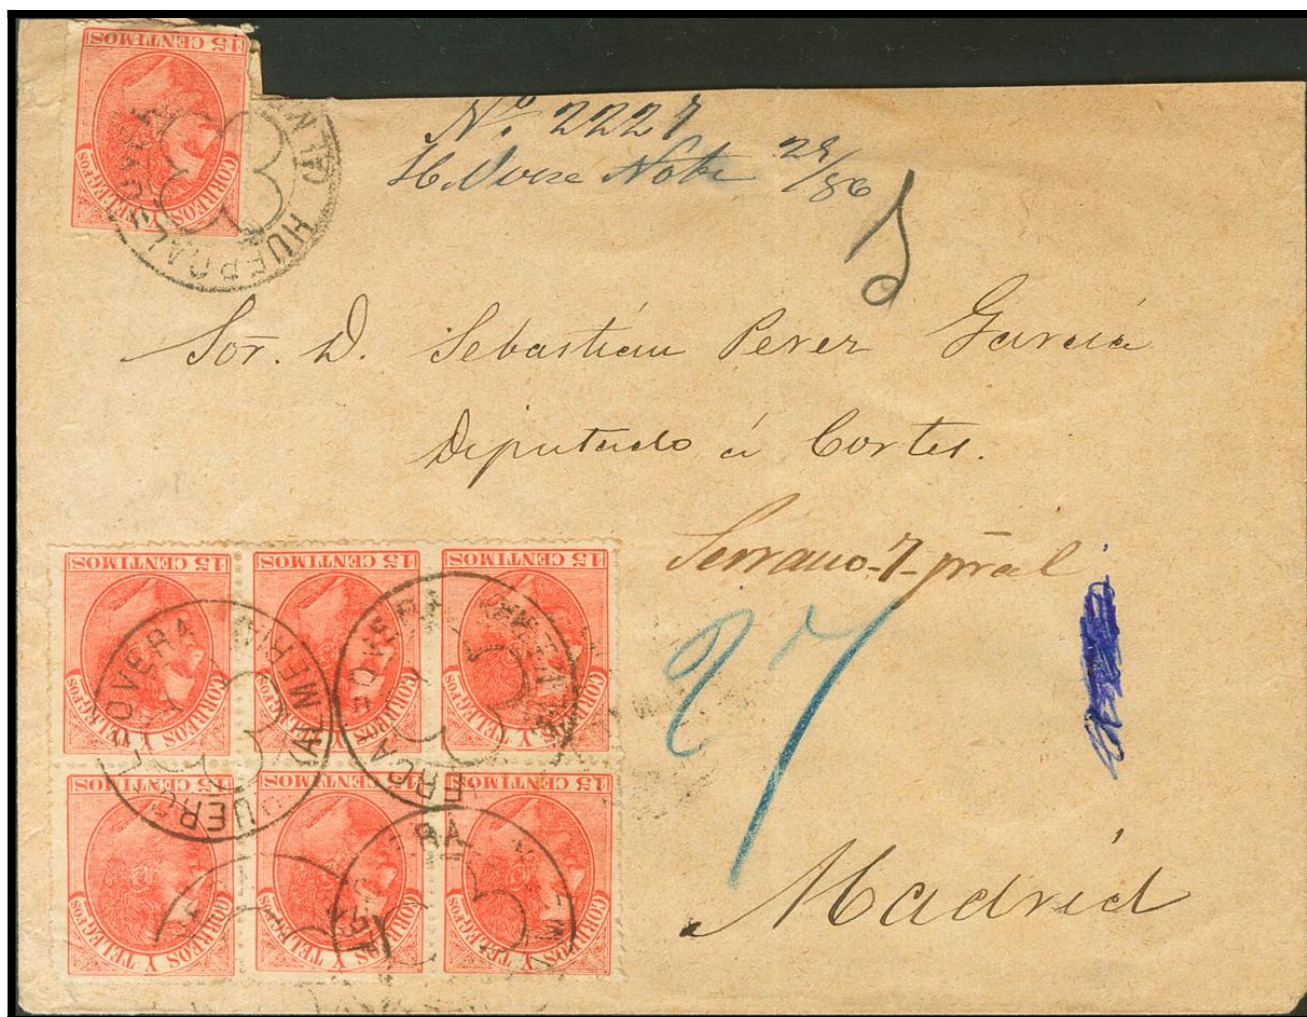 15 CENTIMOS
CORREOS Y TELEGFOS
HUERCAL OVERA
Nº. 2227
29/86
Sor. D. Sebastián Perez García
Diputado á Cortes.
Serrano-7-pral
27
Madrid
15 CENTIMOS
15 CENTIMOS
15 CENTIMOS
CORREOS Y TELEGFOS
CORREOS Y TELEGFOS
CORREOS Y TELEGFOS
HUERCAL OVERA
ALMERIA
15 CENTIMOS
15 CENTIMOS
15 CENTIMOS
CORREOS Y TELEGFOS
CORREOS Y TELEGFOS
CORREOS Y TELEGFOS